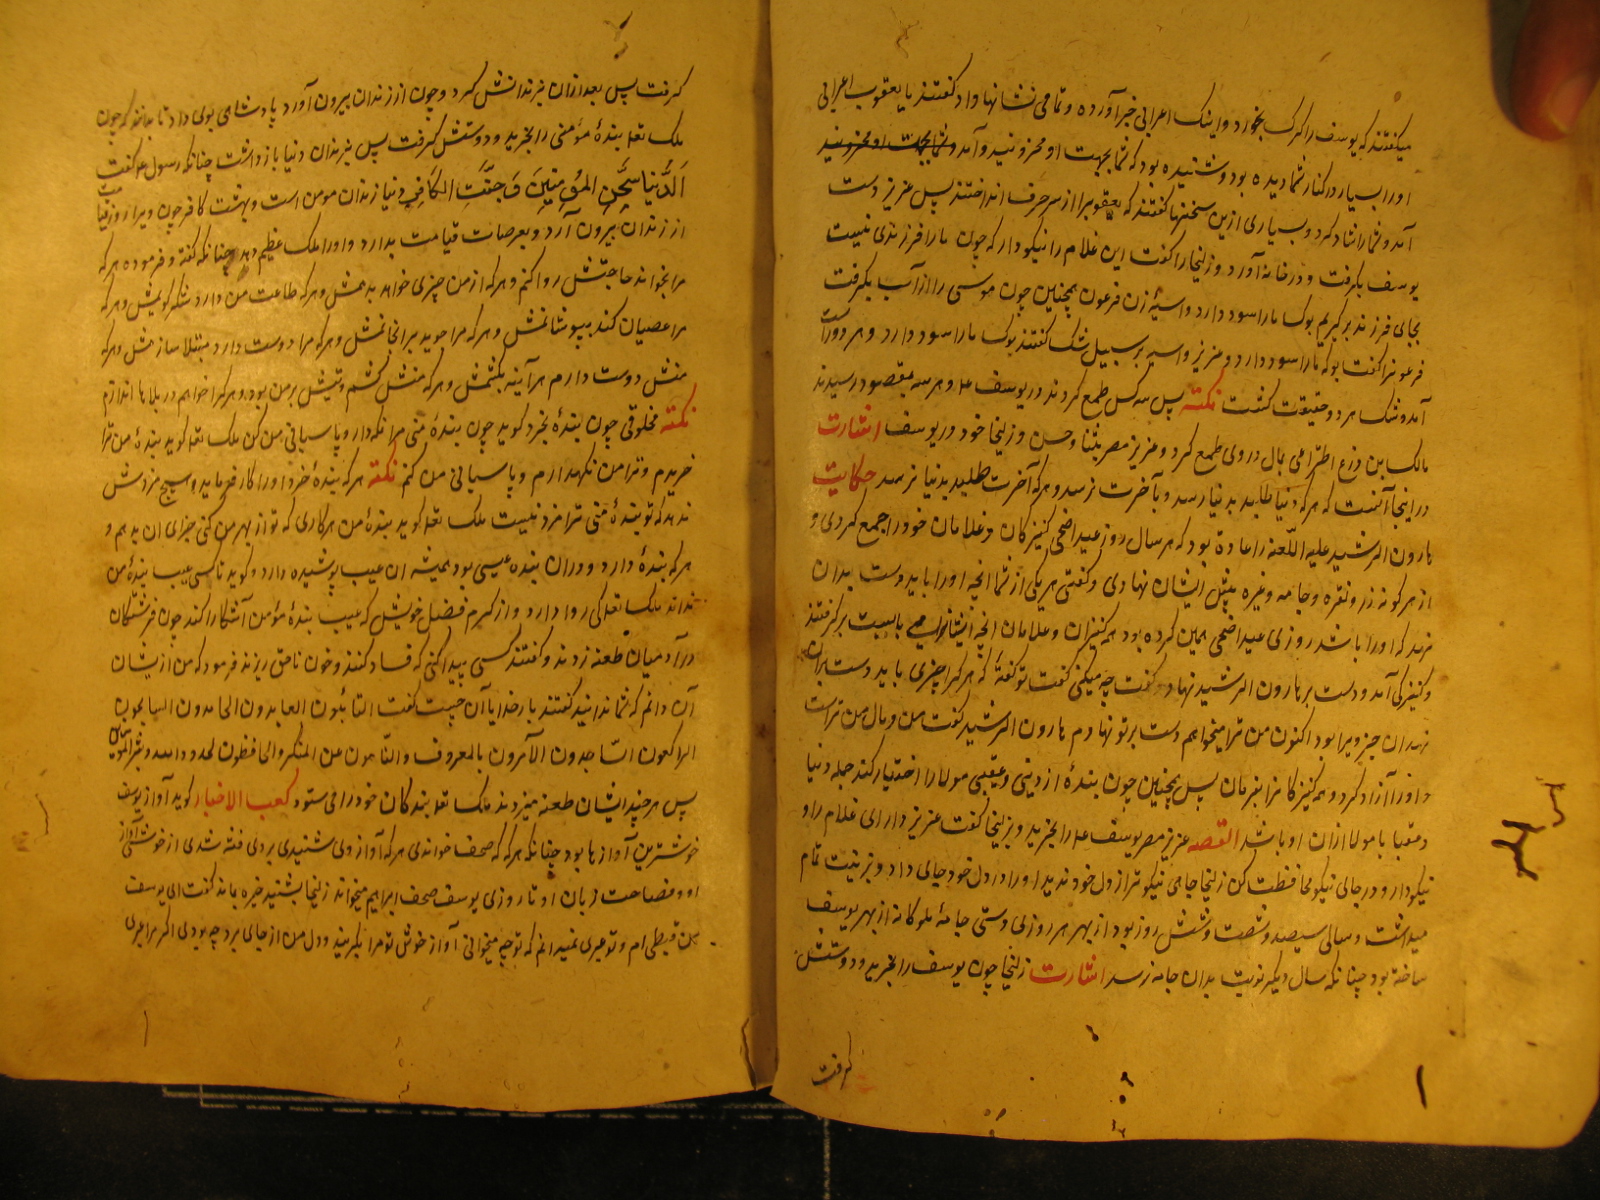 میکفتند که یوسف را کرک بخورد و اینک اعرابی خبر آورده و تمامی نشانها داد کفتند یا یعقوب اعرابی
او را بسیار در کنار شما دیده بود و شنیده بود که شما بجهت او محزونید و آمد
آمد و شما را شاد کرد و بسیاری ازین سخنها کفتند که یعقوب را از سر حرف انداختند پس عزیز دست
یوسف بکرفت و در خانه آورد و زلیخا را کفت این غلام را نیکو دار که چون ما را فرزندی نیست
بجای فرزند برکیریم بوک ما را سود دارد و اسیهٔ زن فرعون همچنین چون موسی را از آب بکرفت
فرعون را کفت بوکه ما را سود دارد و عزیز و اسیه بر سبیل شک کفتند بوک ما را سود دارد و هر دو را
آمد و شک هر دو حقیقت کشت نکته پس سه کس طمع کردند در یوسف ع و هر سه بمقصود رسیدند
مالک ابن ذعر بمال در وی طمع کرد و عزیز مصر و حسن و زلیخا خود در یوسف اشارت
در اینجا آنست که هر که دنیا طلبد بدنیا رسد و بآخرت نرسد و هر که آخرت طلبد بدنیا نرسد حکایت
هارون الرشید علیه اللعنه را عادة بود که هر سال روز عید اضحی کنیزکان و غلامان خود را جمع کردی و
از هر کونه زر و نقره و جامه و غیره پیش ایشان نهادی و کفتی هر یکی از شما آنچه او را باید دست بدان
نهد که او را باشد روزی عید اضحی همین کرده بود همه کنیزان و غلامان آنچه ایشانرا می بایست برکرفتند
و کنیزکی آمد و دست بر هارون الرشید نهاد کفت چه میکنی کفت تو کفتهٔ که هر کرا چیزی باید دست بران
نهد ان چیز ویرا بود اکنون من ترا میخواهم دست بر تو نهادم هارون الرشید کفت من و مال من تراست
و او را آزاد کرد و همه کنیزکانرا بفرمان پس همچنین چون بندهٔ از دینی و عقبی مولا را اختیار کند جمله دنیا
و عقبا با مولا ازان او باشد القصه عزیز مصر یوسف ع را بخرید و بزلیخا کفت عزیز دار ای غلام را و
نیکو دار و در جای نیکو محافظت کن زلیخا جای نیکوتر از دل خود ندید او را در دل خود جای داد و بزینت تمام
میداشت و سالی سیصد و شصت و شش روز بود از بهر هر روزی دستی جامهٔ ملوکانه از بهر یوسف
ساخته بود چنانکه سال دیکر نوبت بدان جامه نرسد اشارت زلیخا چون یوسف را بخرید و دوستش
کرفت
کرفت پس بعد ازان بزندانش کرد و چون از زندان بیرون آورد پادشاهی بوی داد تا بدانند که چون
ملک تعه بندهٔ مؤمنی را بخرید و دوستش کرفت پس بزندان دنیا بازداشت چنانکه رسول ع کفت
اَلدُّنیا سِجْنُ المُؤمِنینَ وَ جَنَّتُ الکافِر دنیا زندان مومن است و بهشت کافر چون ویرا روز قیامت
از زندان بیرون آرد و بعرصات قیامت بدارد و او را ملک عظیم دهد چنانکه کفته و فرموده هر که
مرا بخواند حاجتش روا کنم و هر که از من چیزی خواهد بدهمش و هر که طاعت من دارد شکر کویمش و هر که
مرا عصیان کند بپوشانمش و هر که مرا جوید برانجانمش و هر که مرا دوست دارد مبتلا سازمش و هر که
منش دوست دارم هرآینه بکشمش و هر که منش کشتم دیتش بر من بود و هر کرا خواهم در بلاها اندازم
نکته مخلوقی چون بندهٔ بخرد کوید چون بندهٔ منی مرا نکه دار و پاسبانی من کن ملک تعه کوید بندهٔ من ترا
خریدم و ترا من نکهدارم و پاسبانی من کنم نکته هر که بندهٔ خرد او را کار فرماید و هیچ مزدش
ندهد که تو بندهٔ منی ترا مزد نیست ملک تعه کوید بندهٔ من هر کاری که تو از بهر من کنی جزای ان بدهم و
هر که بندهٔ دارد و دران بنده عیبی بود همیشه ان عیب پوشیده دارد و کوید تا کسی عیب بندهٔ من
نداند ملک تعه کی روا دارد و از کرم فضل خویش که عیب بندهٔ مؤمن آشکارا کند چون فرشتکان
در آدمیان طعنه زدند و کفتند کسی پیدا کنی که فساد کنند و خون ناحق ریزند فرمود که من از ایشان
آن دانم که شما ندانید کفتند بار خدایا آن چیست کفت التائبون العابدون الحامدون السایحون
الراکعون السّاجدون الآمرون بالمعروف والنّاهون عن المنکر والحافظون لحدود الله وبشر المومنین
پس هر چند ایشان طعنه میزدند ملک تعه بندکان خود را می ستود کعب الاخبار کوید آواز یوسف
خوشترین آوازها بود چنانکه هر که که صحف خواندی هر که آواز وی شنیدی بر وی فتنه شدی از خوشی آواز
او و فصاحت زبان او تا روزی یوسف صحف ابراهیم میخواند زلیخا بشنید خیره بماند کفت ای یوسف
من قبطی ام و تو عبری نمیدانم که تو چه میخوانی آواز خوش تو مرا بکریند و دل من از جای برد چه بودی اکر مرا عبری